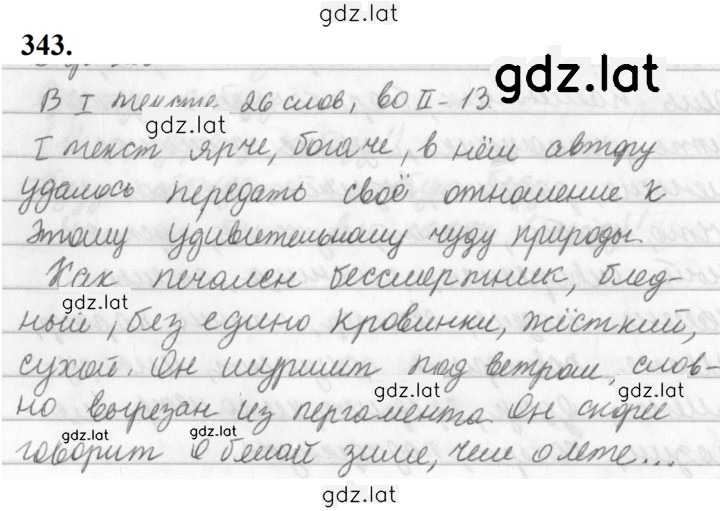 gdz.lat
343.
gdz.lat
В I тексте 26 слов, во II - 13.
gdz.lat
I текст ярче, богаче, в нём автору
удалось передать своё отношение к
этому удивительному чуду природы.
Как печален бессмертник, блед-
gdz.lat
ный, без едино кровинки, жёсткий,
сухой. Он шуршит под ветром, слов-
gdz.lat gdz.lat
но вырезан из пергамента. Он скорее
gdz.lat gdz.lat
говорит о белой зиме, чем о лете...
gdz.lat